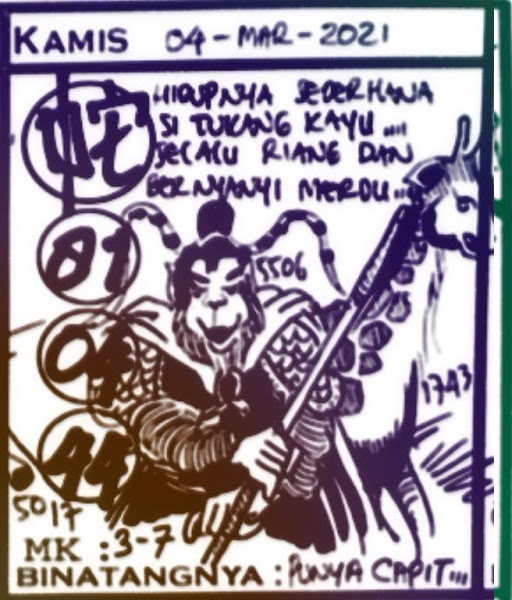 KAMIS 04-MAR-2021
HIDUPNYA SEDERHANA
SI TUKANG KAYU ....
SECALU RIANG DAN
BERNYANYI MERDU...
81
5506
04
1743
44
5017
MK : 3-7
BINATANGNYA : PUNYA CAPIT...